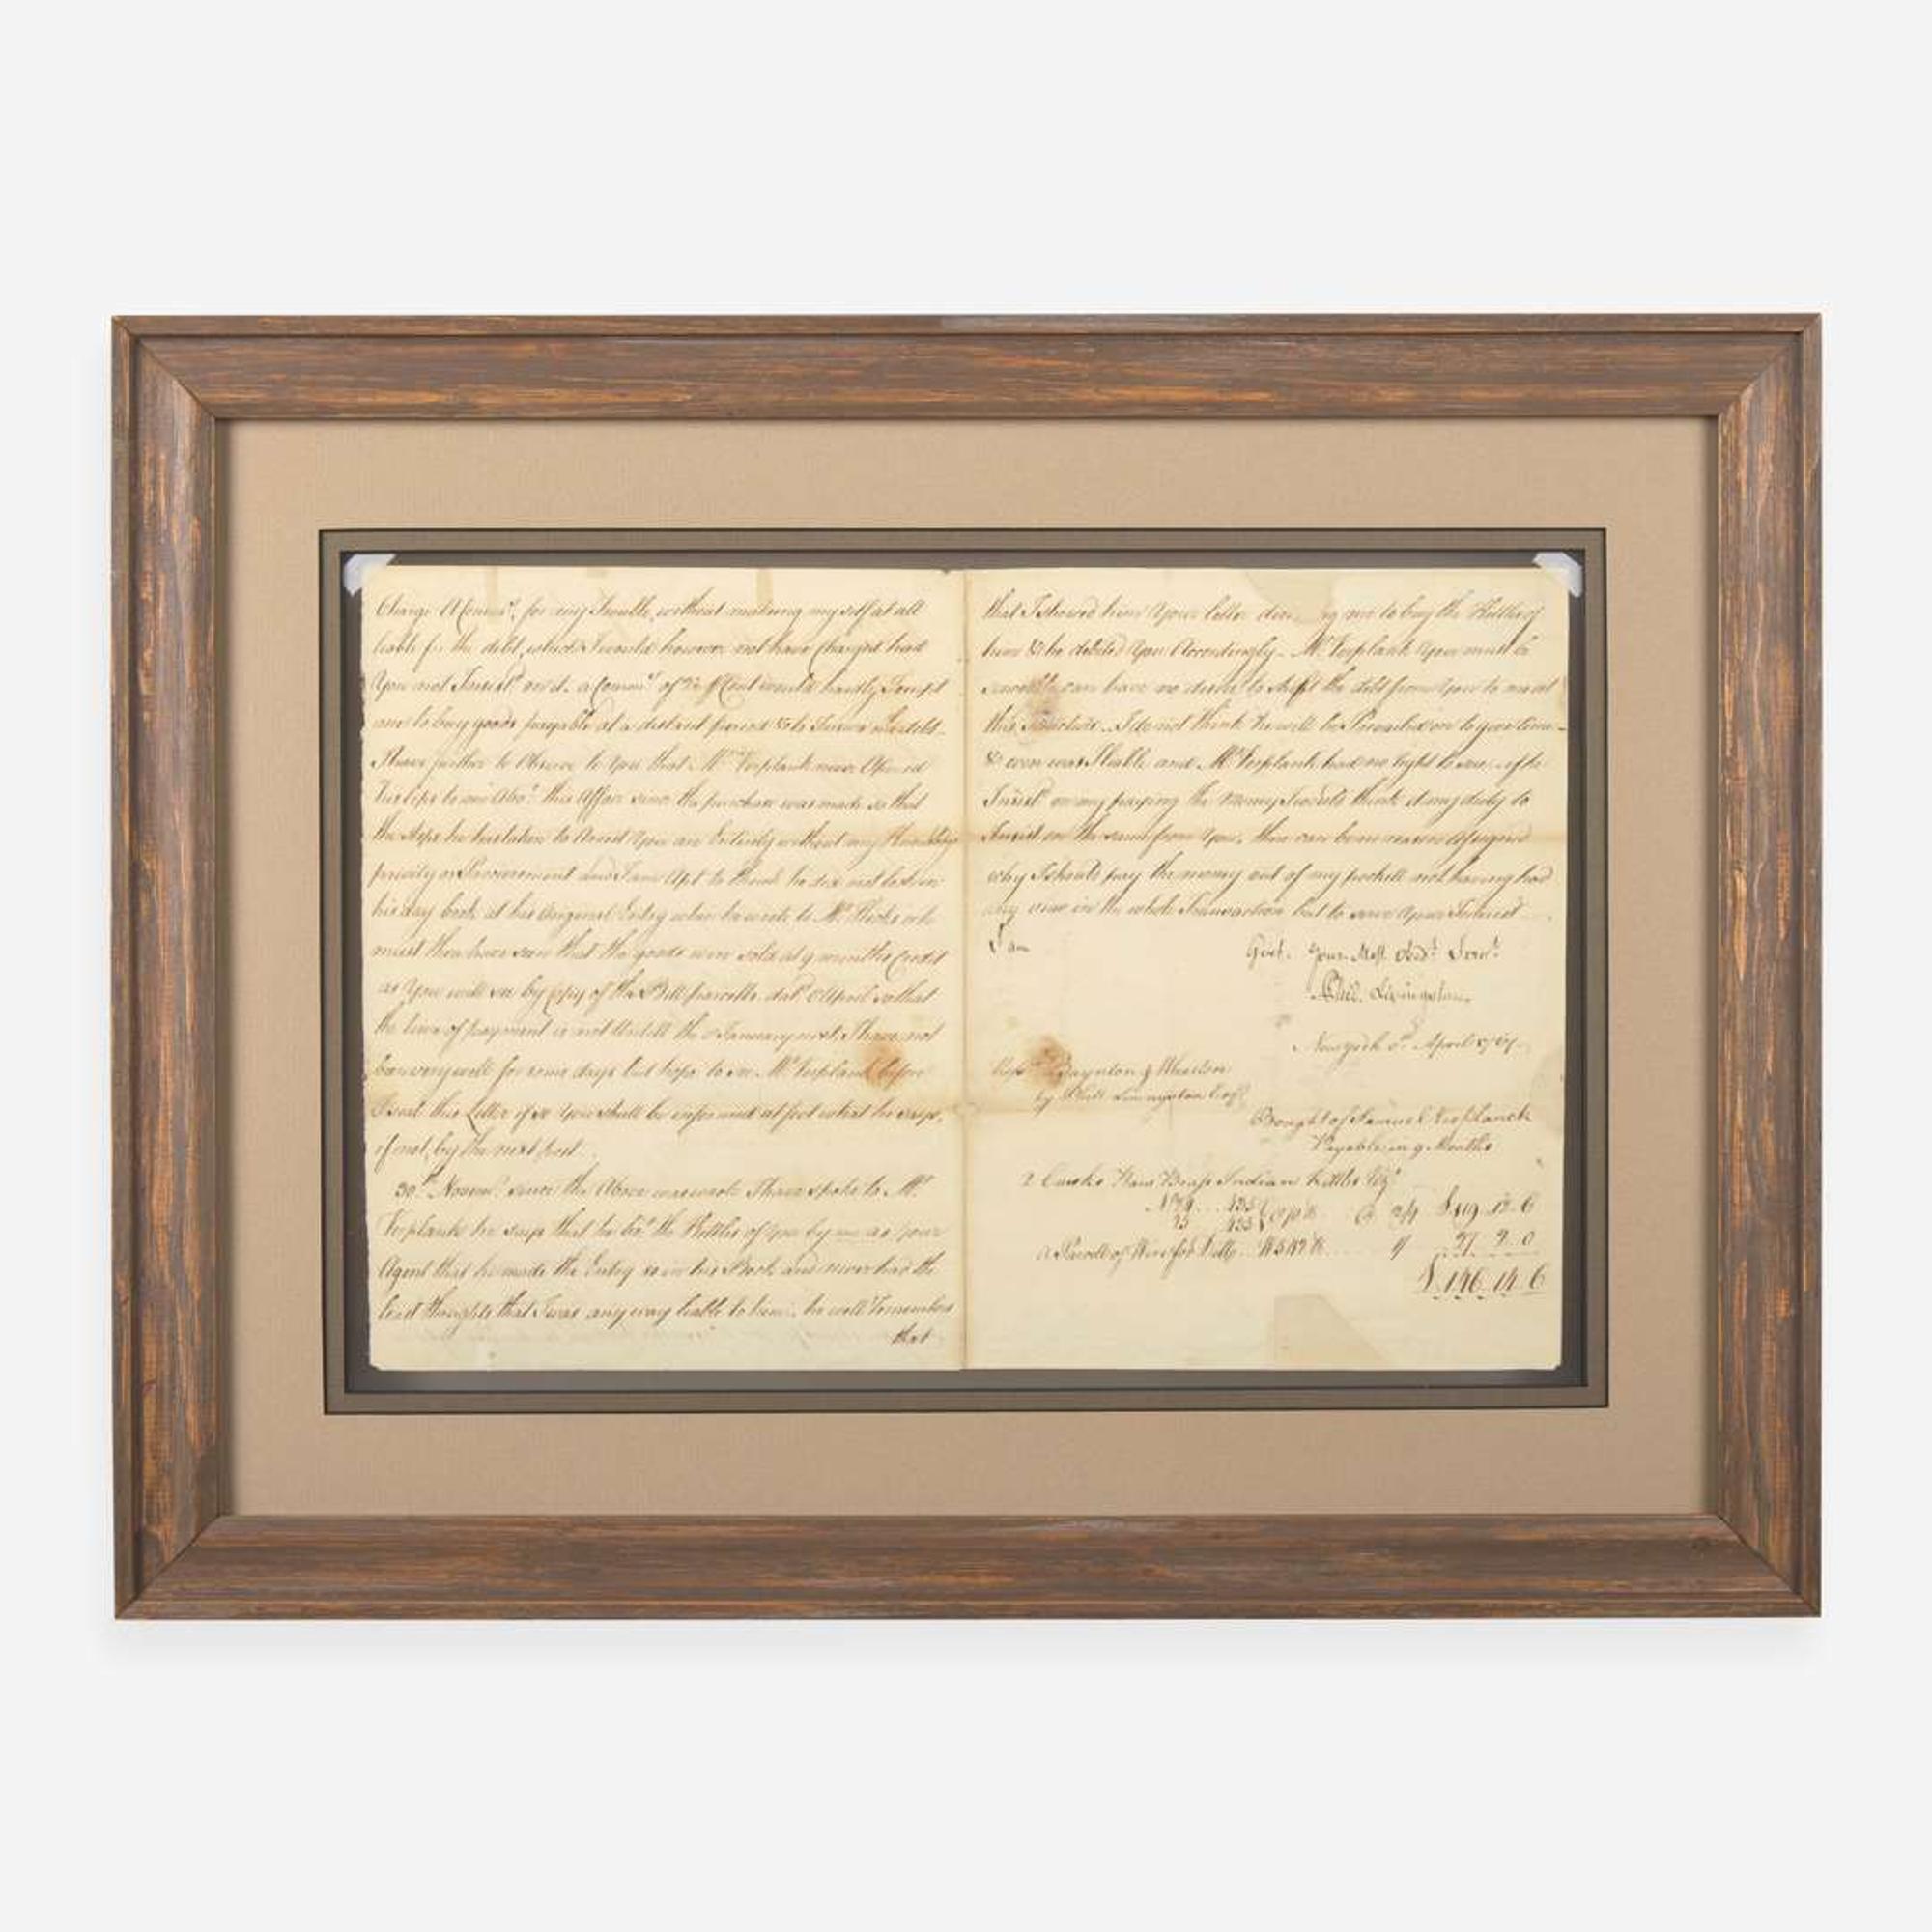 Charge A Commn. for my Trouble, without making my self at all
liable for the debt, which I would however not have Charged had
You not Insistd on it. a Commn. of 2½ Cent would hardly Tempt
me to buy goods payable at a distant period & to Insure the debt.
I have further to Observe to You that Mr. Verplank never Opened
his lips to me Abot. this Affair since the purchase was made so that
the steps he has taken to Arrest You are Entirely without my Knowledge
privity or Procurement and I am Apt to think he did not look in
his day book at his Original Entry when he wrote to Mr. Hicks who
must then have seen that the goods were sold at 9 months Credit
as You will see by Copy of the Bill parcells datd. April so that
the time of payment is not Untill the January next. I have not
been very well for some days but hope to see Mr. Verplank before
I send this Letter if so You shall be informed at foot what he says,
if not, by the next post.
30th. Novemr. since the Above was wrote I have spoke to Mr.
Verplank he says that he the Kettles of you by me as Your
Agent that he made the Entry so in his Book and never had the
least thoughts that I was any way liable to him. he well remembers
that
that I showed him Your letter me to buy the Kettles of
him & he debited You Accordingly. Mr. Verplank You must be
sensible can have no desire to shift the debt from You to me at
this I do not think he will be Prevailed on to give time
& even was I liable and Mr. Verplank had no Right to sue, if he
Insistd. on my paying the Money I would think it my duty to
Insist on the same from You. there can be no reason Assigned
why I should pay the money out of my pockett not having had
any view in the whole Transaction but to serve Your Interest
I am
Gent. Your Most Obedt. Servt.
Phil. Livingston
New York April 1767
Messrs. Baynton & Wharton
by Phill Livingston Esqr.
Bought of Samuel Verplanck
Payable in 9 Months
2 Casks Brass Indian Kettles
a Parcell of Wire for
£ 146. 14. 6